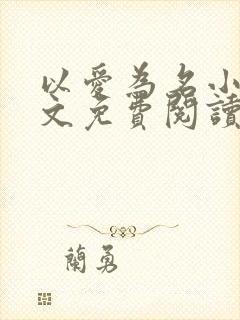 以愛為名小
文免費閱讀
蘭勇